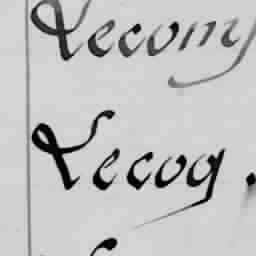 Lecomy
Lecoq.